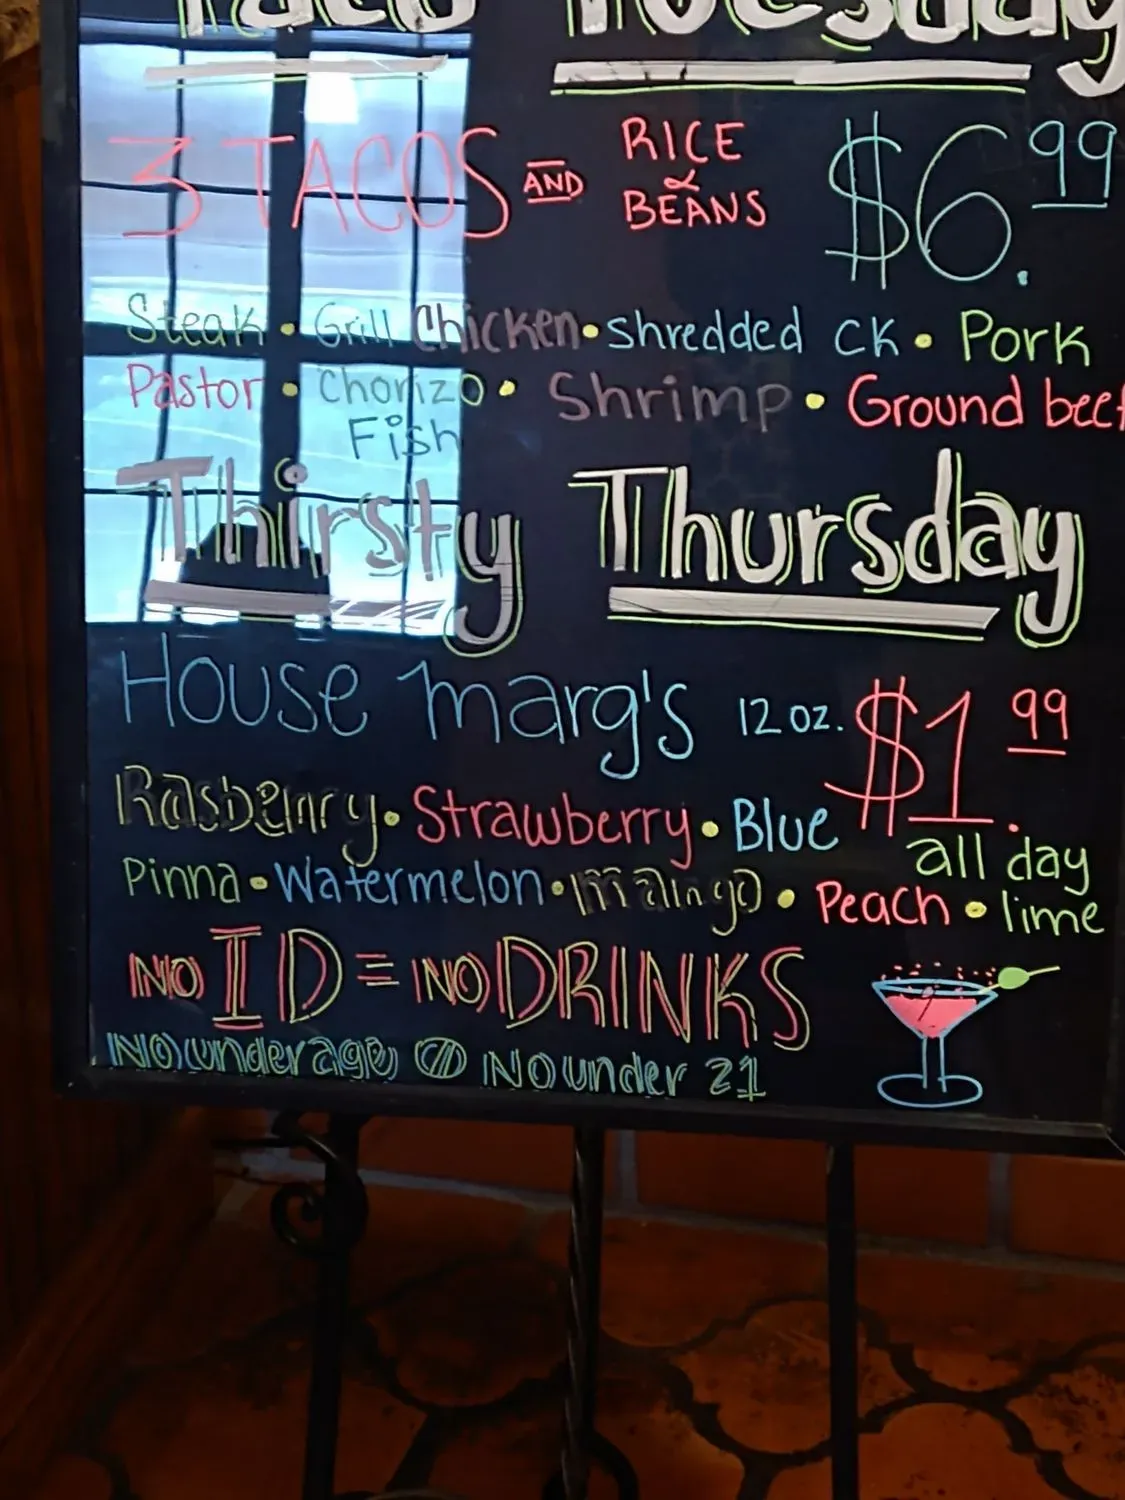 Taco Tuesday
3 TACOS AND RICE & BEANS $6.99
Steak • Grill Chicken • shredded CK • Pork
Pastor • Chorizo • Shrimp • Ground beef
Fish
Thirsty Thursday
House marg's 12 oz. $1.99
Rasberry • Strawberry • Blue
all day
Pinna • Watermelon • mango • Peach • lime
NO ID = NO DRINKS
NO under age NO under 21